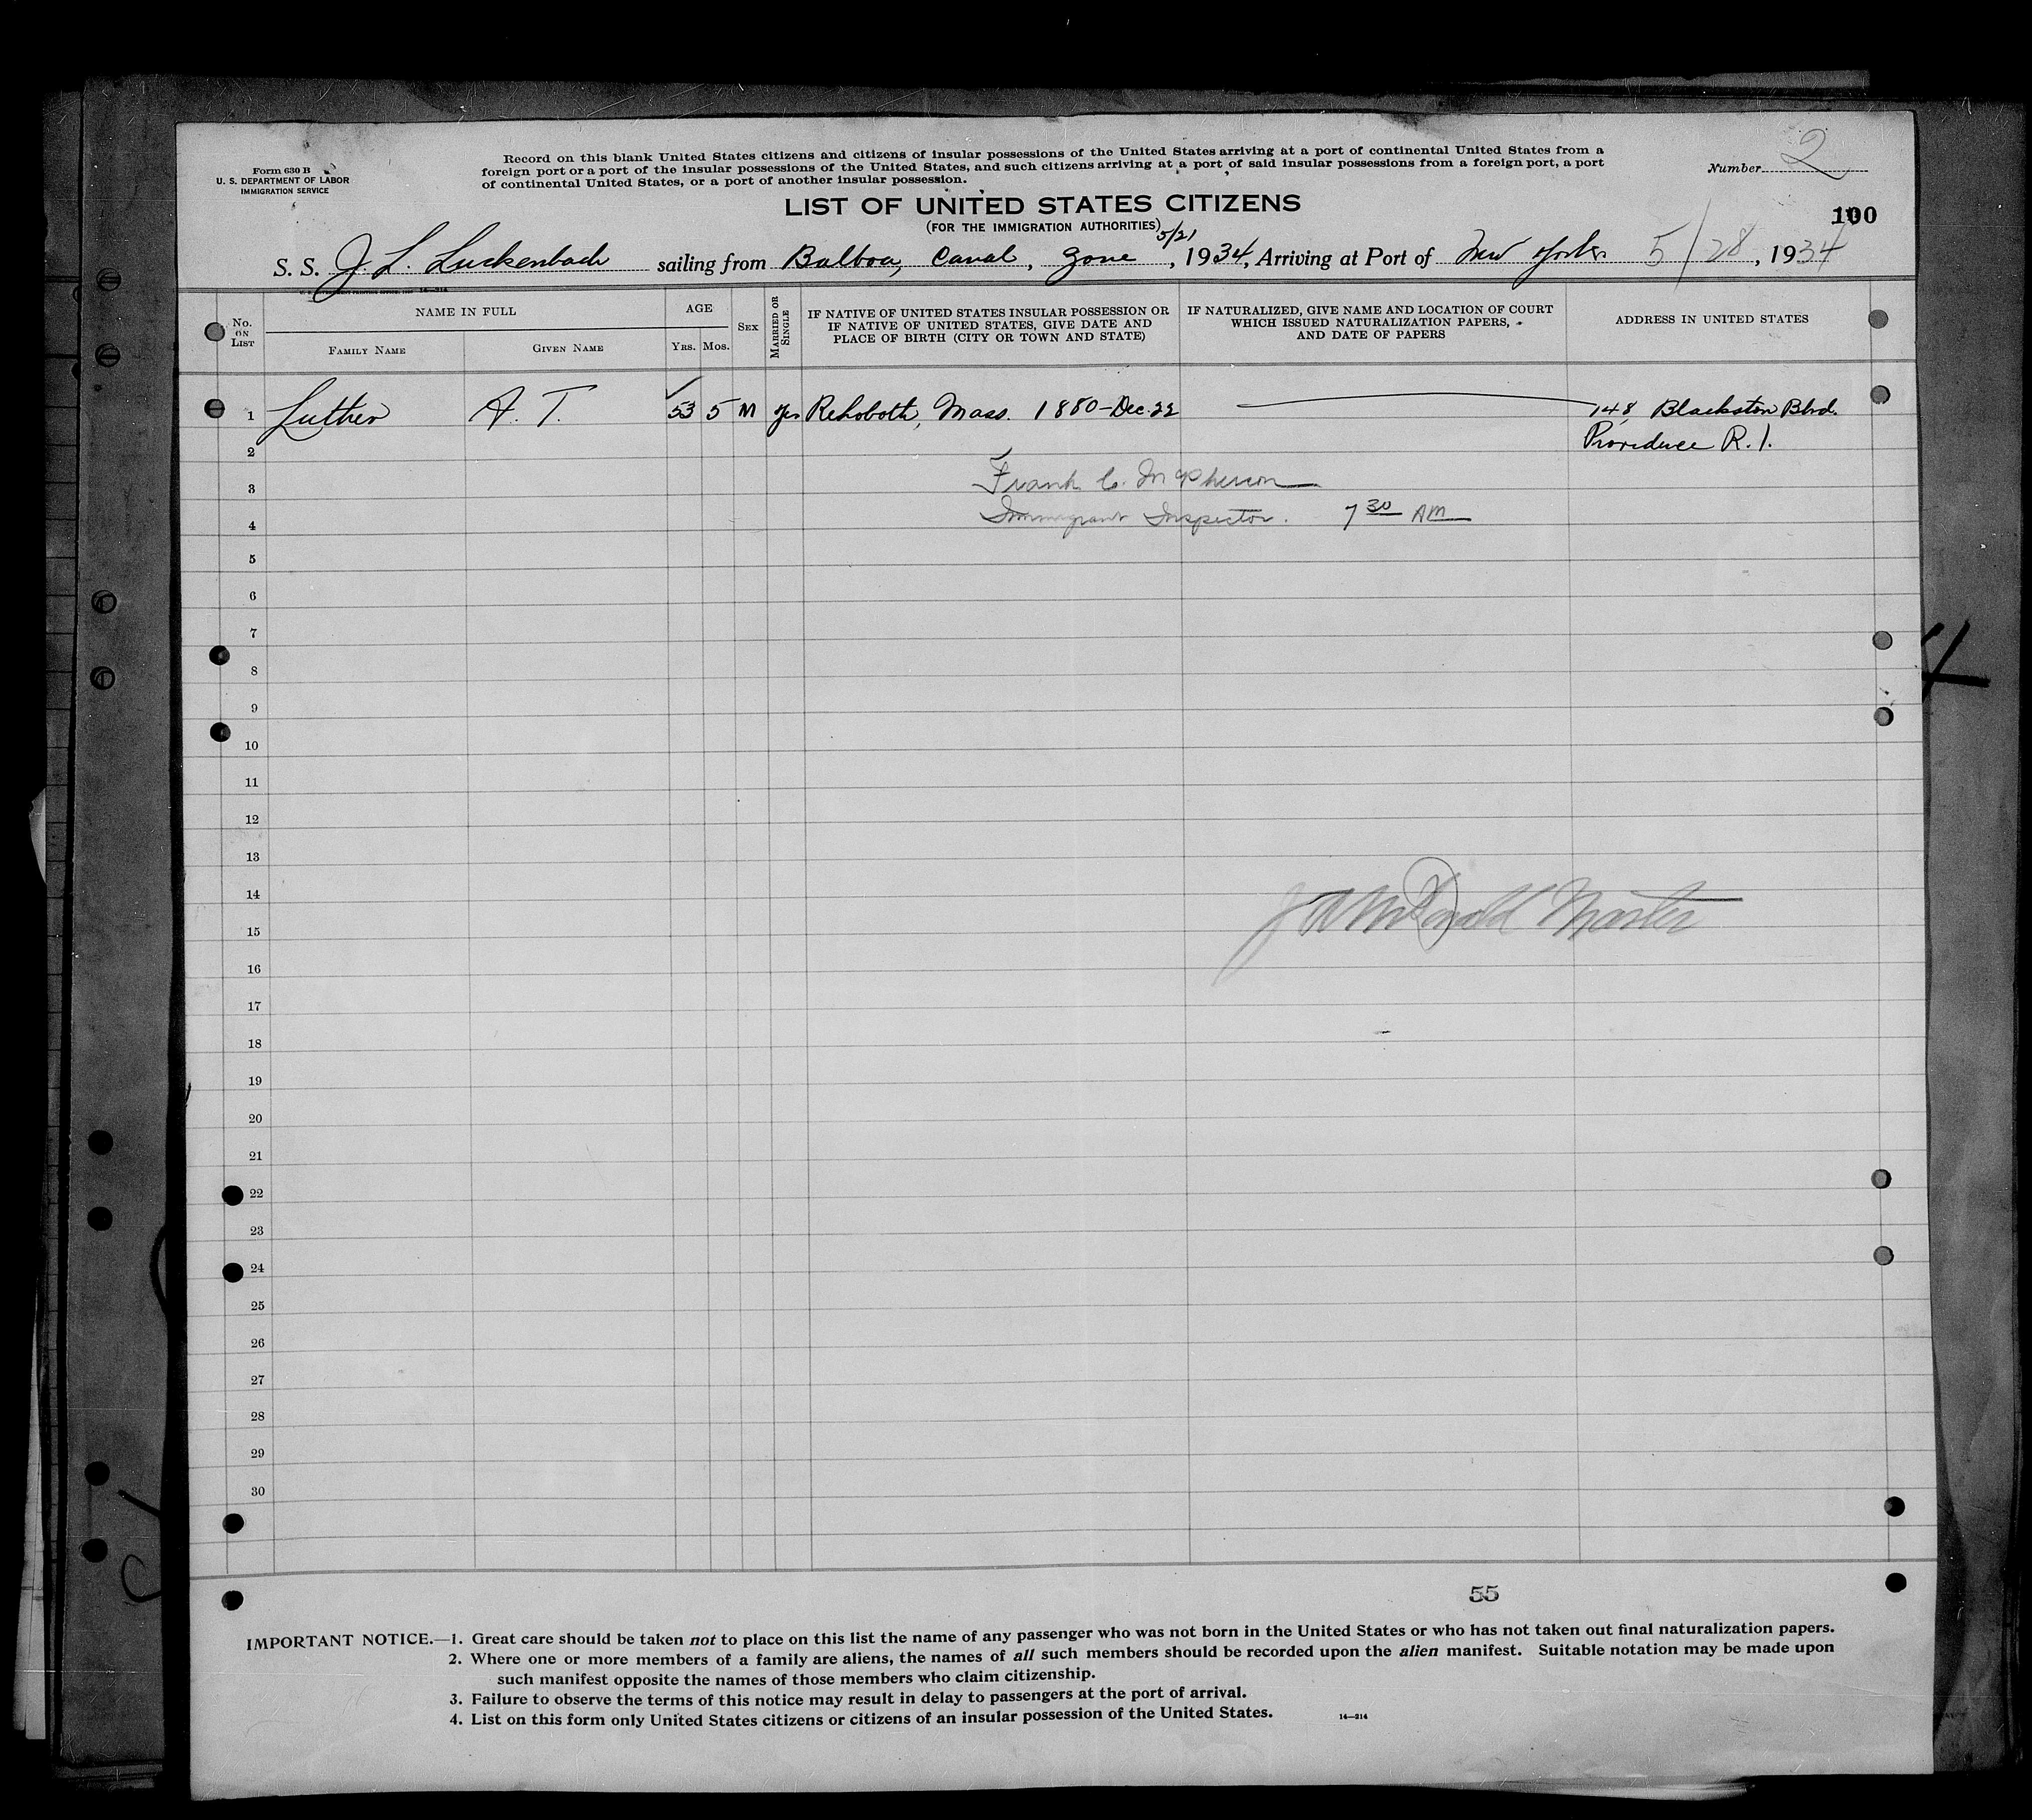 Form 630 B
U. S. DEPARTMENT OF LABOR
IMMIGRATION SERVICE
Record on this blank United States citizens and citizens of insular possessions of the United States arriving at a port of continental United States from a
foreign port or a port of the insular possessions of the United States, and such citizens arriving at a port of said insular possessions from a foreign port, a port
of continental United States, or a port of another insular possession.
Number 2
LIST OF UNITED STATES CITIZENS
(FOR THE IMMIGRATION AUTHORITIES)
100
5/21
S. S. J. L. Luckenbach sailing from Balboa, Canal, Zone, 1934, Arriving at Port of New York 5/28, 1934
No. ON LIST
NAME IN FULL
FAMILY NAME
GIVEN NAME
AGE
YRS.
MOS.
SEX
MARRIED OR SINGLE
IF NATIVE OF UNITED STATES INSULAR POSSESSION OR
IF NATIVE OF UNITED STATES, GIVE DATE AND
PLACE OF BIRTH (CITY OR TOWN AND STATE)
IF NATURALIZED, GIVE NAME AND LOCATION OF COURT
WHICH ISSUED NATURALIZATION PAPERS,
AND DATE OF PAPERS
ADDRESS IN UNITED STATES
1 Luther A. T. 53 5 M Yes Rehoboth, Mass. 1880-Dec. 22 148 Blackston Blvd.
2 Providence R. I.
3 Frank C. McPherson
4 Immigrant Inspector. 7 30 AM
5
6
7
8
9
10
11
12
13
14
15 McDonald Master
16
17
18
19
20
21
22
23
24
25
26
27
28
29
30
55
IMPORTANT NOTICE.—1. Great care should be taken not to place on this list the name of any passenger who was not born in the United States or who has not taken out final naturalization papers.
2. Where one or more members of a family are aliens, the names of all such members should be recorded upon the alien manifest. Suitable notation may be made upon
such manifest opposite the names of those members who claim citizenship.
3. Failure to observe the terms of this notice may result in delay to passengers at the port of arrival.
4. List on this form only United States citizens or citizens of an insular possession of the United States.
14—214